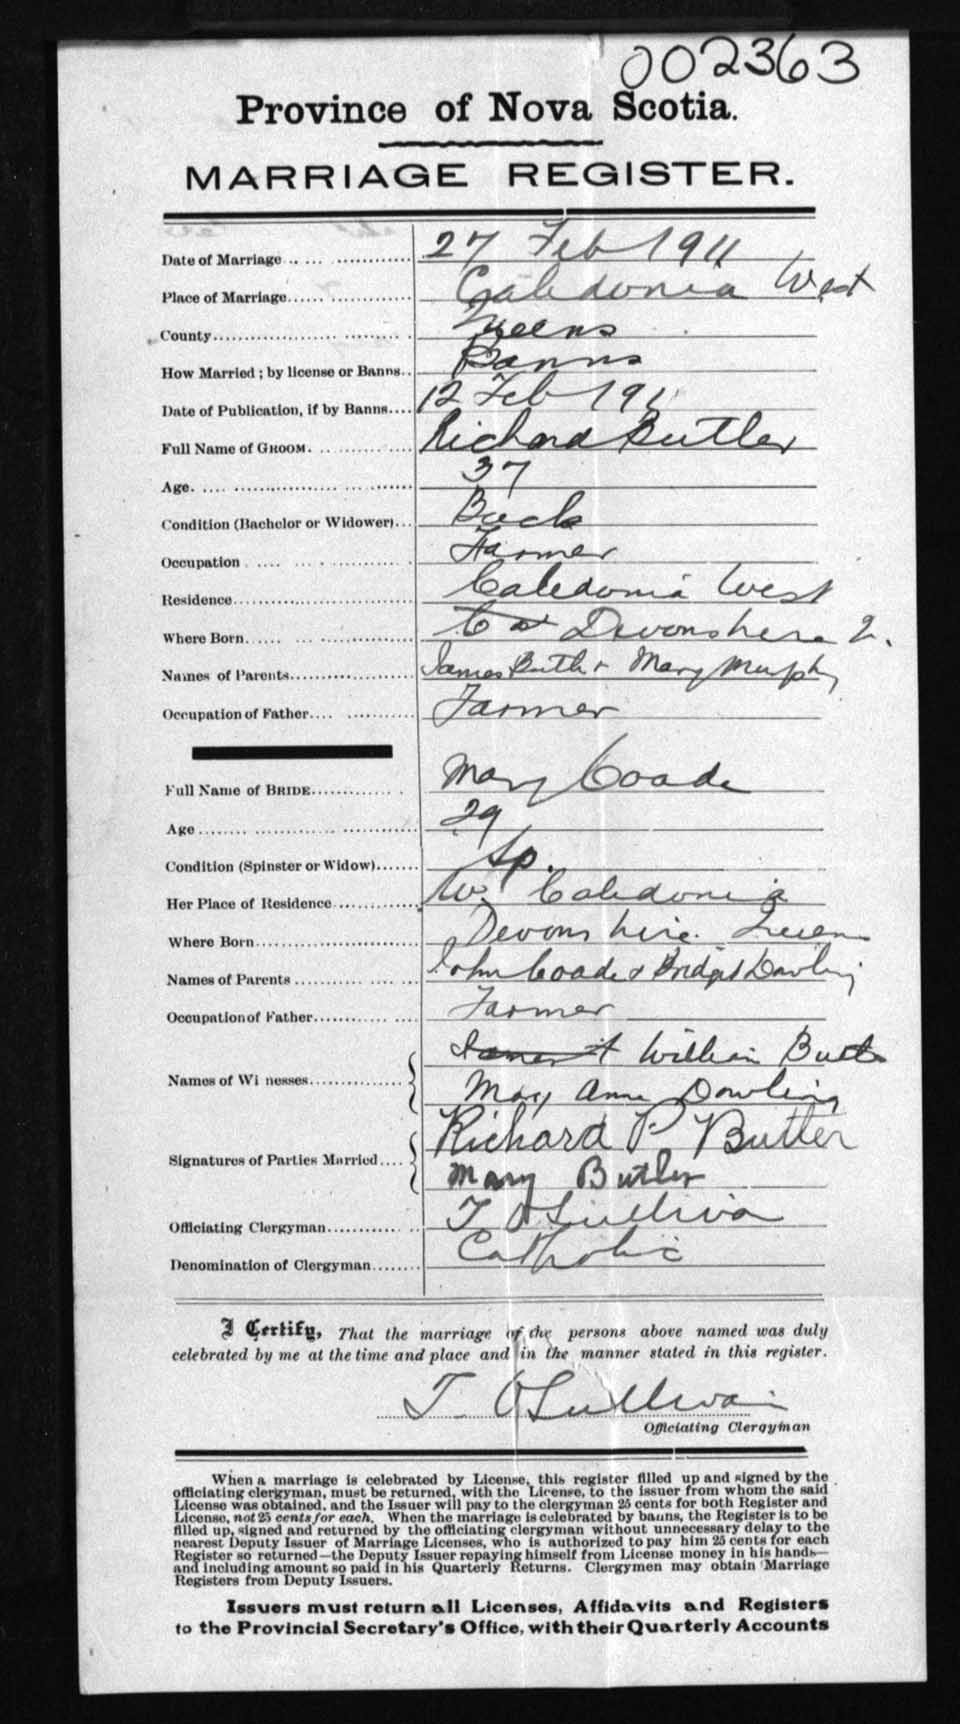 002363
Province of Nova Scotia.
MARRIAGE REGISTER.
Date of Marriage 27 Feb 1911
Place of Marriage Caledonia West
County Queens
How Married; by license or Banns Banns
Date of Publication, if by Banns 12 Feb 191
Full Name of GROOM. Richard Butler
Age. 37
Condition (Bachelor or Widower) Bach
Occupation Farmer
Residence Caledonia West
Where Born Devonshire Q.
Names of Parents James Butler Mary Murphy
Occupation of Father Farmer
Full Name of BRIDE Mary Coade
Age 29
Condition (Spinster or Widow) Sp.
Her Place of Residence W. Caledonia
Where Born Devonshire. Queens
Names of Parents John Coade & Bridget Dowling
Occupation of Father Farmer
William Butler
Names of Wi nesses Mary Anne Dowling
Richard P. Butler
Signatures of Parties Married Mary Butler
Officiating Clergyman T O'Sullivan
Denomination of Clergyman Catholic
I Certify, That the marriage of the persons above named was duly
celebrated by me at the time and place and in the manner stated in this register.
T. O'Sullivan
Officiating Clergyman
When a marriage is celebrated by License, this register filled up and signed by the
officiating clergyman, must be returned, with the License, to the issuer from whom the said
License was obtained, and the Issuer will pay to the clergyman 25 cents for both Register and
License, not 25 cents for each. When the marriage is celebrated by banns, the Register is to be
filled up, signed and returned by the officiating clergyman without unnecessary delay to the
nearest Deputy Issuer of Marriage Licenses, who is authorized to pay him 25 cents for each
Register so returned—the Deputy Issuer repaying himself from License money in his hands—
and including amount so paid in his Quarterly Returns. Clergymen may obtain Marriage
Registers from Deputy Issuers.
Issuers must return all Licenses, Affidavits and Registers
to the Provincial Secretary's Office, with their Quarterly Accounts